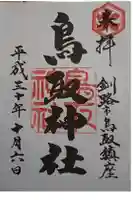 奉拝
釧路市鳥取鎮座
鳥取神社
平成三十年十月六日